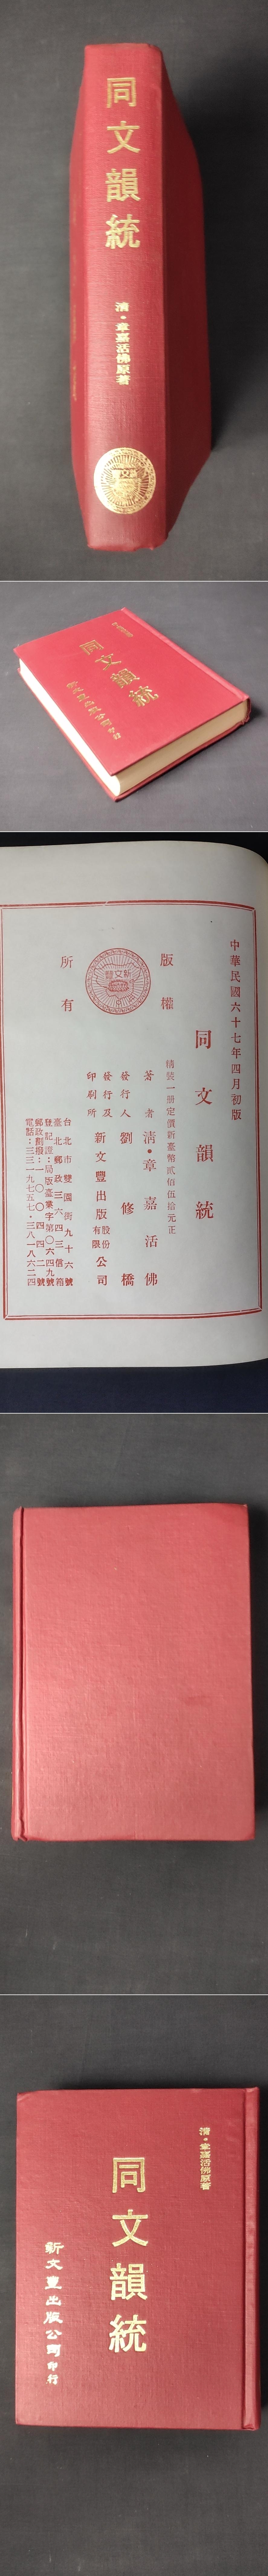 同文韻統
清・章嘉活佛原著
同文韻統
中華民國六十七年四月初版
同文韻統
精裝一冊定價新臺幣貳佰伍拾元正
版權
所有
新文豐
著者 清・章嘉活佛
發行人 劉修橋
發行及
印刷所 新文豐出版股份有限公司
台北市雙園街九十六號
臺北郵政三六四三信箱
登記證：局版臺業字第〇六四九號
郵政劃撥：一〇〇四四二號
電話：三三一九七五七・三八一八六二四
清・章嘉活佛原著
同文韻統
新文豐出版公司印行